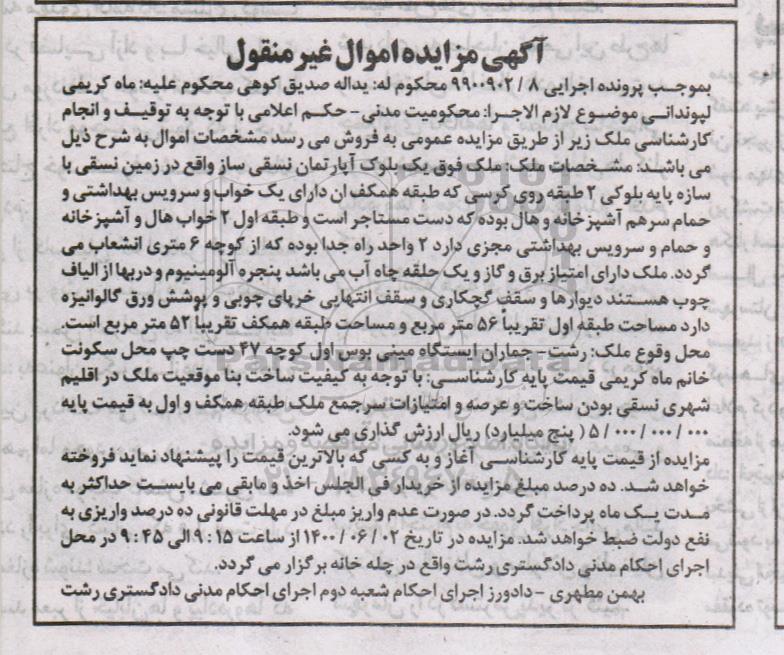 آگهی مزایده اموال غیر منقول
بموجب پرونده اجرایی ۸ / ۹۹۰۰۹۰۲ محکوم له: یداله صدیق کوهی محکوم علیه: ماه کریمی
لپوندانی موضوع لازم الاجرا: محکومیت مدنی - حکم اعلامی با توجه به توقیف و انجام
کارشناسی ملک زیر از طریق مزایده عمومی به فروش می رسد مشخصات اموال به شرح ذیل
می باشد: مشخصات ملک: ملک فوق یک بلوک آپارتمان نسقی ساز واقع در زمین نسقی با
سازه پایه بلوکی ۲ طبقه روی کرسی که طبقه همکف ان دارای یک خواب و سرویس بهداشتی و
حمام سرهم آشپزخانه و هال بوده که دست مستاجر است و طبقه اول ۲ خواب هال و آشپزخانه
و حمام و سرویس بهداشتی مجزی دارد ۲ واحد راه جدا بوده که از کوچه ۶ متری انشعاب می
گردد. ملک دارای امتیاز برق و گاز و یک حلقه چاه آب می باشد پنجره آلومینیوم و دربها از الیاف
چوب هستند دیوارها و سقف گچکاری و سقف انتهایی خرپای چوبی و پوشش ورق گالوانیزه
دارد مساحت طبقه اول تقریباً ۵۶ متر مربع و مساحت طبقه همکف تقریباً ۵۲ متر مربع است.
محل وقوع ملک: رشت - جماران ایستگاه مینی بوس اول کوچه ۴۷ دست چپ محل سکونت
خانم ماه کریمی قیمت پایه کارشناسی: با توجه به کیفیت ساخت بنا موقعیت ملک در اقلیم
شهری نسقی بودن ساخت و عرصه و امتیازات سرجمع ملک طبقه همکف و اول به قیمت پایه
۵/۰۰۰/۰۰۰/۰۰۰ ( پنج میلیارد) ریال ارزش گذاری می شود.
مزایده از قیمت پایه کارشناسی آغاز و به کسی که بالاترین قیمت را پیشنهاد نماید فروخته
خواهد شد. ده درصد مبلغ مزایده از خریدار فی المجلس اخذ و مابقی می بایست حداکثر به
مدت یک ماه پرداخت گردد. در صورت عدم واریز مبلغ در مهلت قانونی ده درصد واریزی به
نفع دولت ضبط خواهد شد. مزایده در تاریخ ۱۴۰۰/۰۶/۰۲ از ساعت ۹:۱۵ الی ۹:۴۵ در محل
اجرای احکام مدنی دادگستری رشت واقع در چله خانه برگزار می گردد.
بهمن مطهری - دادورز اجرای احکام شعبه دوم اجرای احکام مدنی دادگستری رشت